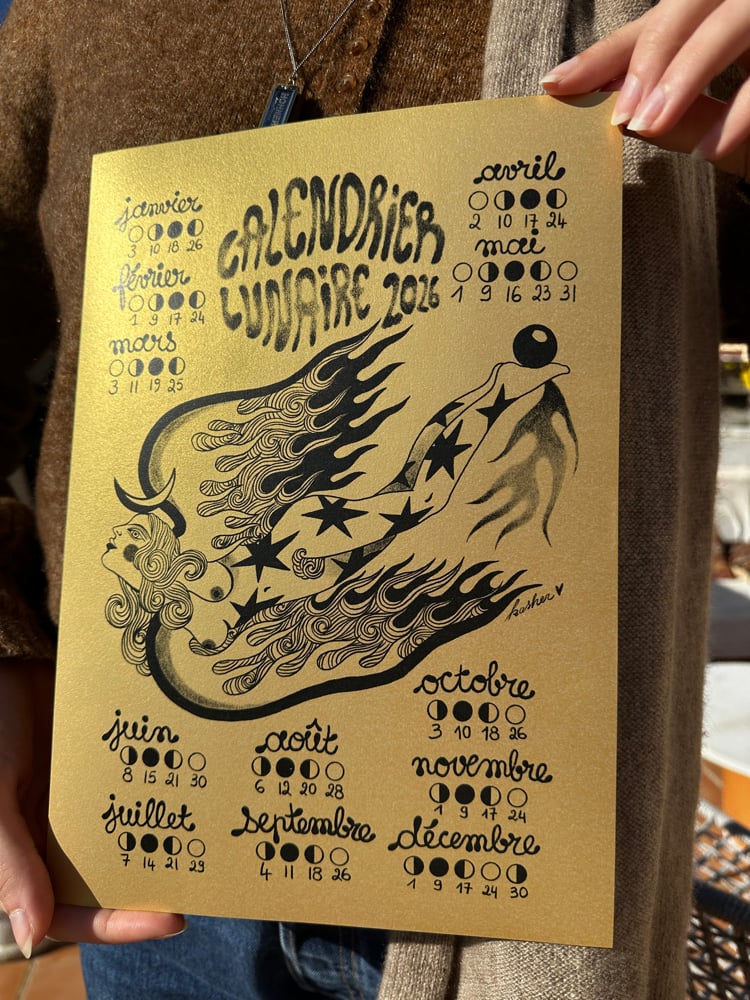 CALENDRIER
LUNAIRE 2026
janvier
3 10 18 26
février
1 9 17 24
mars
3 11 19 25
avril
2 10 17 24
mai
1 9 16 23 31
kasher
juin
8 15 21 30
juillet
7 14 21 29
août
6 12 20 28
septembre
4 11 18 26
octobre
3 10 18 26
novembre
1 9 17 24
décembre
1 9 17 24 30